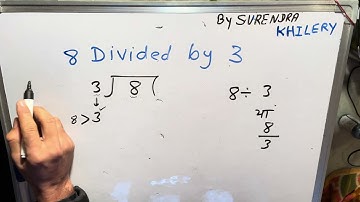 By SURENDRA
KHILERY
8 Divided by 3
3) 8 (
↓
8 > 3
8 ÷ 3
या
8
3